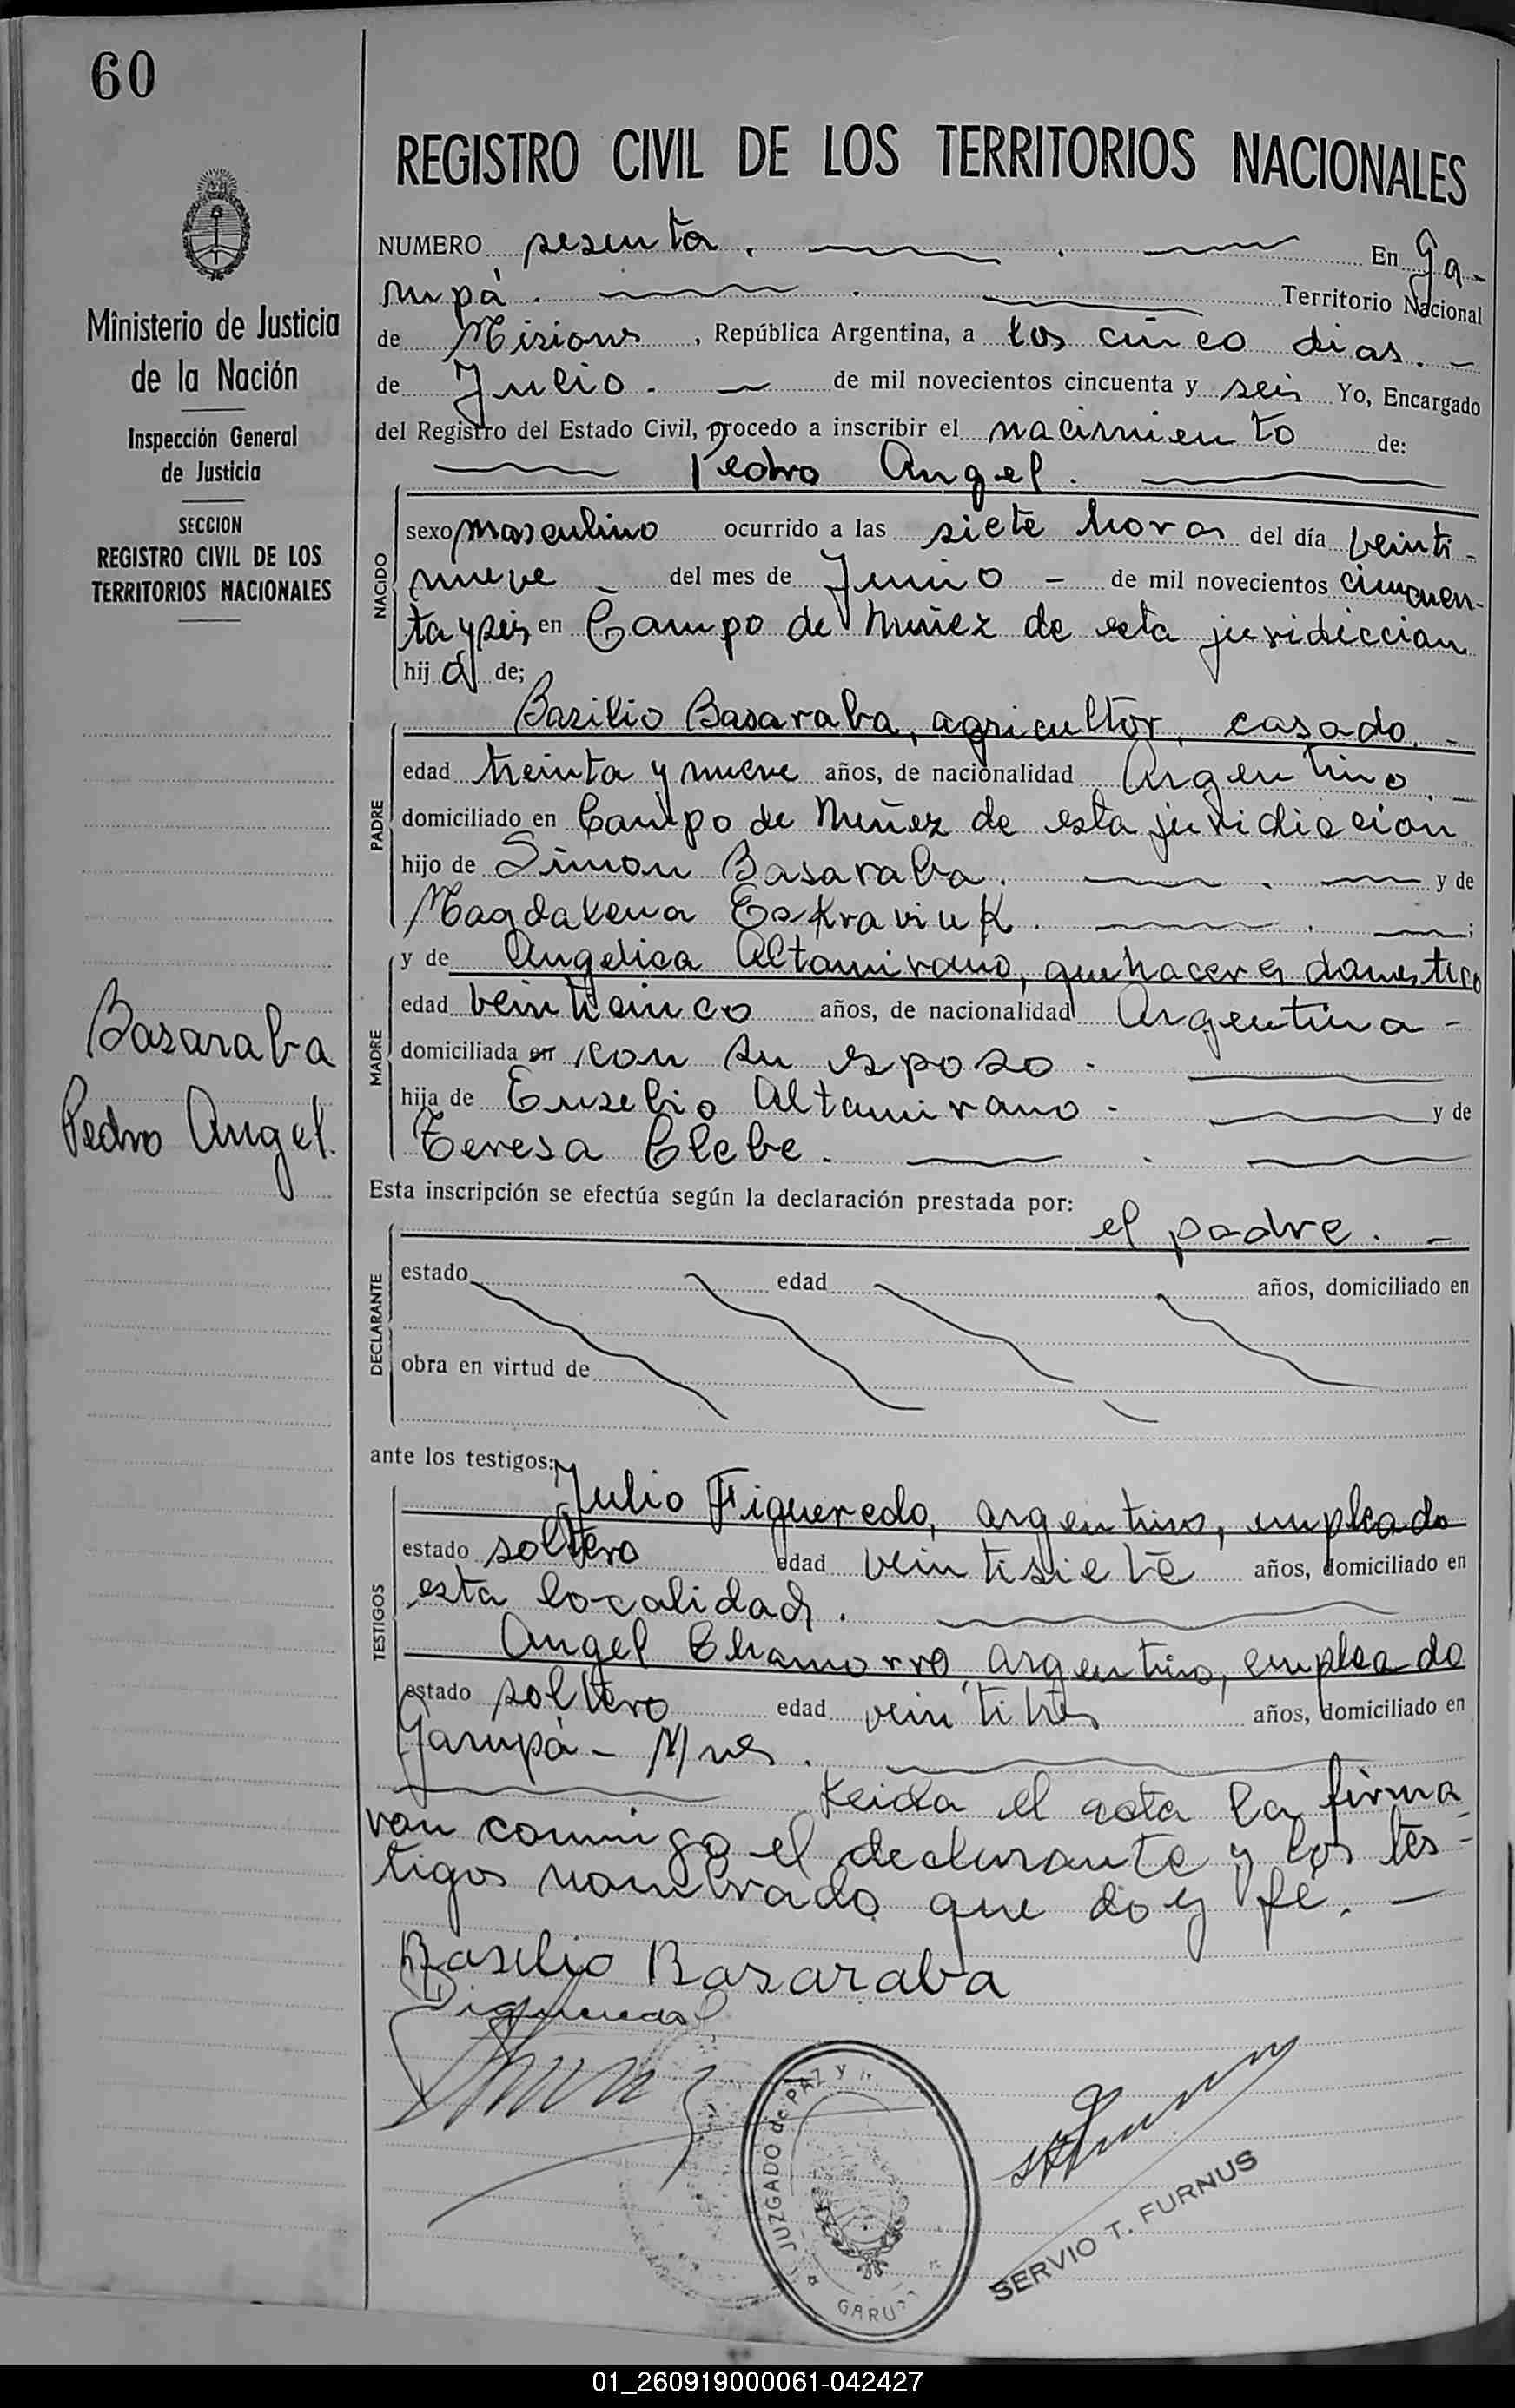 60
Ministerio de Justicia
de la Nación
Inspección General
de Justicia
SECCION
REGISTRO CIVIL DE LOS
TERRITORIOS NACIONALES
Basaraba
Pedro Angel.
REGISTRO CIVIL DE LOS TERRITORIOS NACIONALES
NUMERO sesenta. En Ga-
rupá. Territorio Nacional
de Misiones, República Argentina, a los cinco dias. -
de Julio. de mil novecientos cincuenta y seis Yo, Encargado
del Registro del Estado Civil, procedo a inscribir el nacimiento de:
Pedro Angel.
NACIDO
sexo masculino ocurrido a las siete horas del día veinti-
nueve - del mes de Junio - de mil novecientos cincuen-
ta y seis en Campo de Nuñez de esta juridiccion
hij o de;
PADRE
Basilio Basaraba, agricultor, casado. -
edad treinta y nueve años, de nacionalidad Argentino. -
domiciliado en Campo de Nuñez de esta juridiccion
hijo de Simon Basaraba. y de
Magdalena Eskraviuk. ;
MADRE
y de Angelica Altamirano, quehaceres domestico
edad veinticinco años, de nacionalidad Argentina -
domiciliada en con su esposo -
hija de Eusebio Altamirano - y de
Teresa Clebe.
Esta inscripción se efectúa según la declaración prestada por:
el padre. -
DECLARANTE
estado edad años, domiciliado en
obra en virtud de
ante los testigos:
TESTIGOS
Julio Figueredo, argentino, empleado
estado soltero edad veintisiete años, domiciliado en
esta localidad.
Angel Chamorro, argentino, empleado
estado soltero edad veintitres años, domiciliado en
Garupá - Mnes.
Leida el acta la firma-
ron conmigo el declarante y los tes-
tigos nombrado que doy fé. -
Basilio Basaraba
JUZGADO de PAZ Y
GARU
SERVIO T. FURNUS
01_260919000061-042427